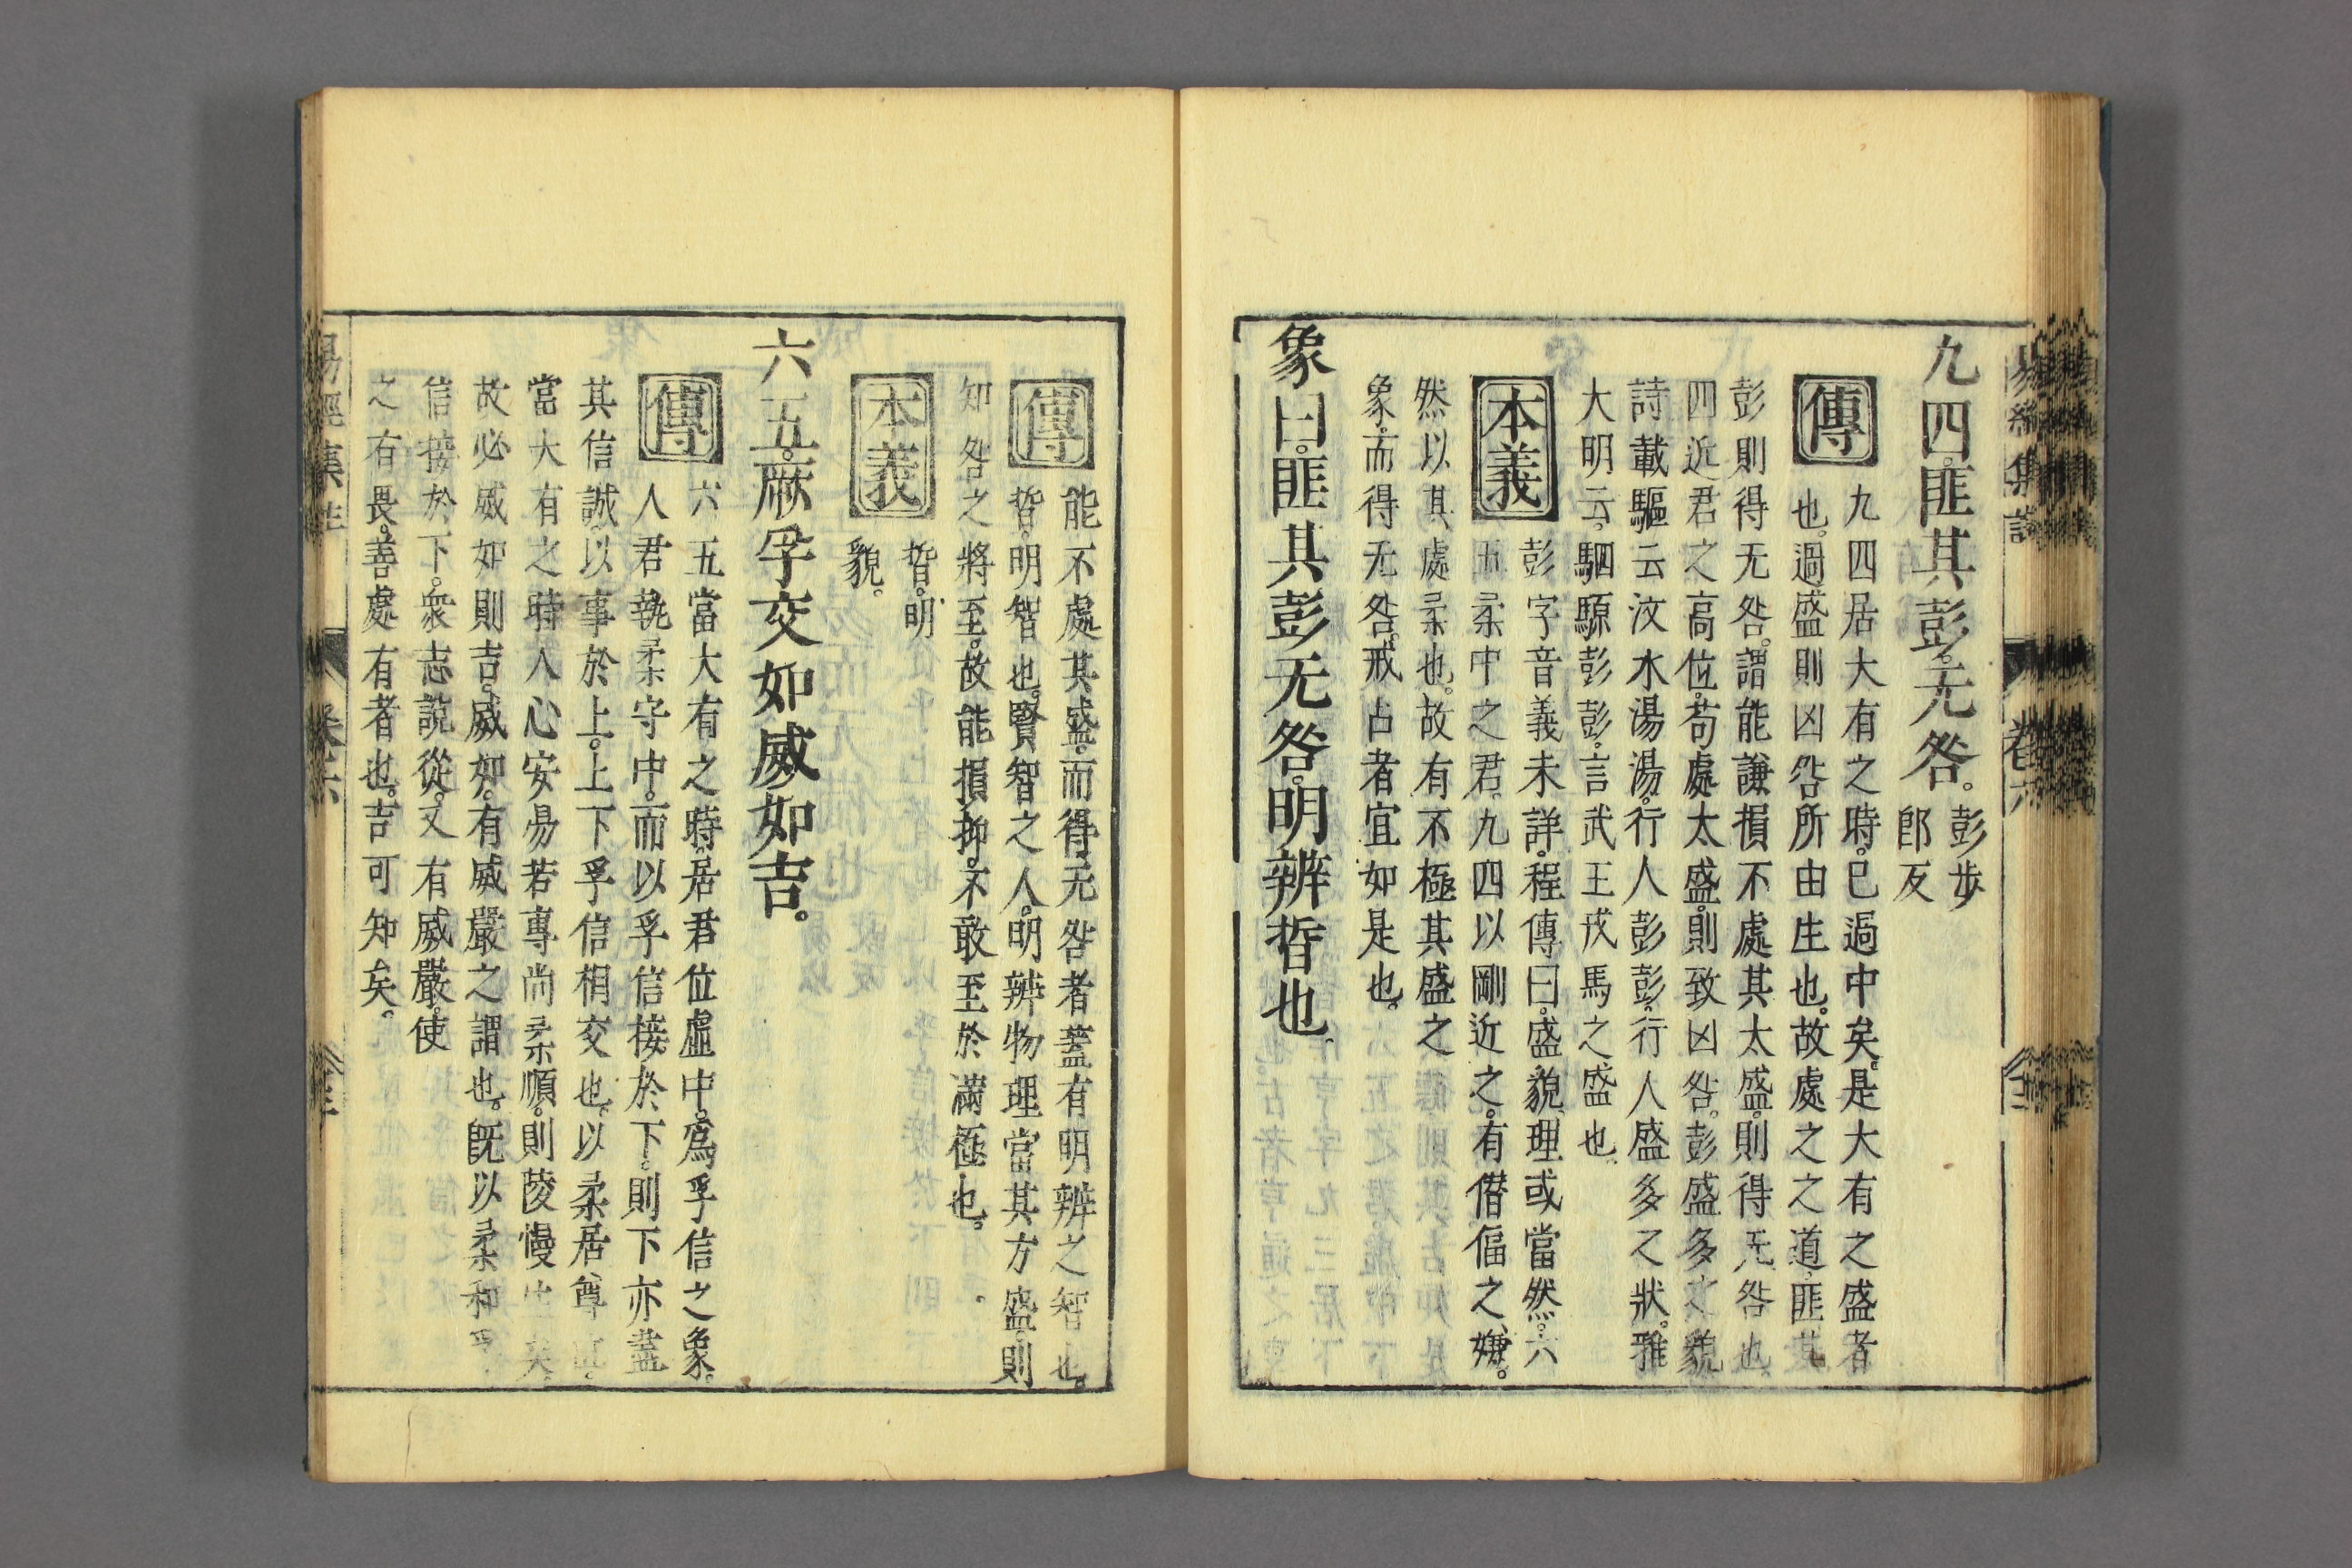 九四。匪其彭。无咎。彭步
郎反
傳
九四居大有之時。已過中矣。是大有之盛者
也。過盛則凶咎所由生也。故處之之道。匪其
彭則得无咎。謂能謙損不處其太盛。則得无咎也。
四近君之高位。苟處太盛。則致凶咎。彭盛多之貌
詩載驅云汶水湯湯。行人彭彭。行人盛多之狀。雅
大明云。駟騵彭彭。言武王戎馬之盛也。
本義
彭字音義未詳。程傳曰。盛貌。理或當然。六
五柔中之君。九四以剛近之。有僭偪之嫌。
然以其處柔也。故有不極其盛之
象。而得无咎。戒占者宜如是也。
象曰。匪其彭无咎。明辨晢也。
傳
能不處其盛。而得无咎者。蓋有明辨之智也。
晢。明智也。賢智之人。明辨物理。當其方盛。則
知咎之將至。故能損抑。不敢至於滿極也。
本義
晢。明
貌。
六五。厥孚交如威如吉。
傳
六五當大有之時。居君位虛中。爲孚信之象。
人君執柔守中。而以孚信接於下。則下亦盡
其信誠以事於上。上下孚信相交也。以柔居尊位。
當大有之時。人心安易。若專尚柔順。則陵慢生矣。
故必威如則吉。威如。有威嚴之謂也。旣以柔和孚
信接於下。衆志說從。又有威嚴。使
之有畏。善處有者也。吉可知矣。
易經集註
卷六